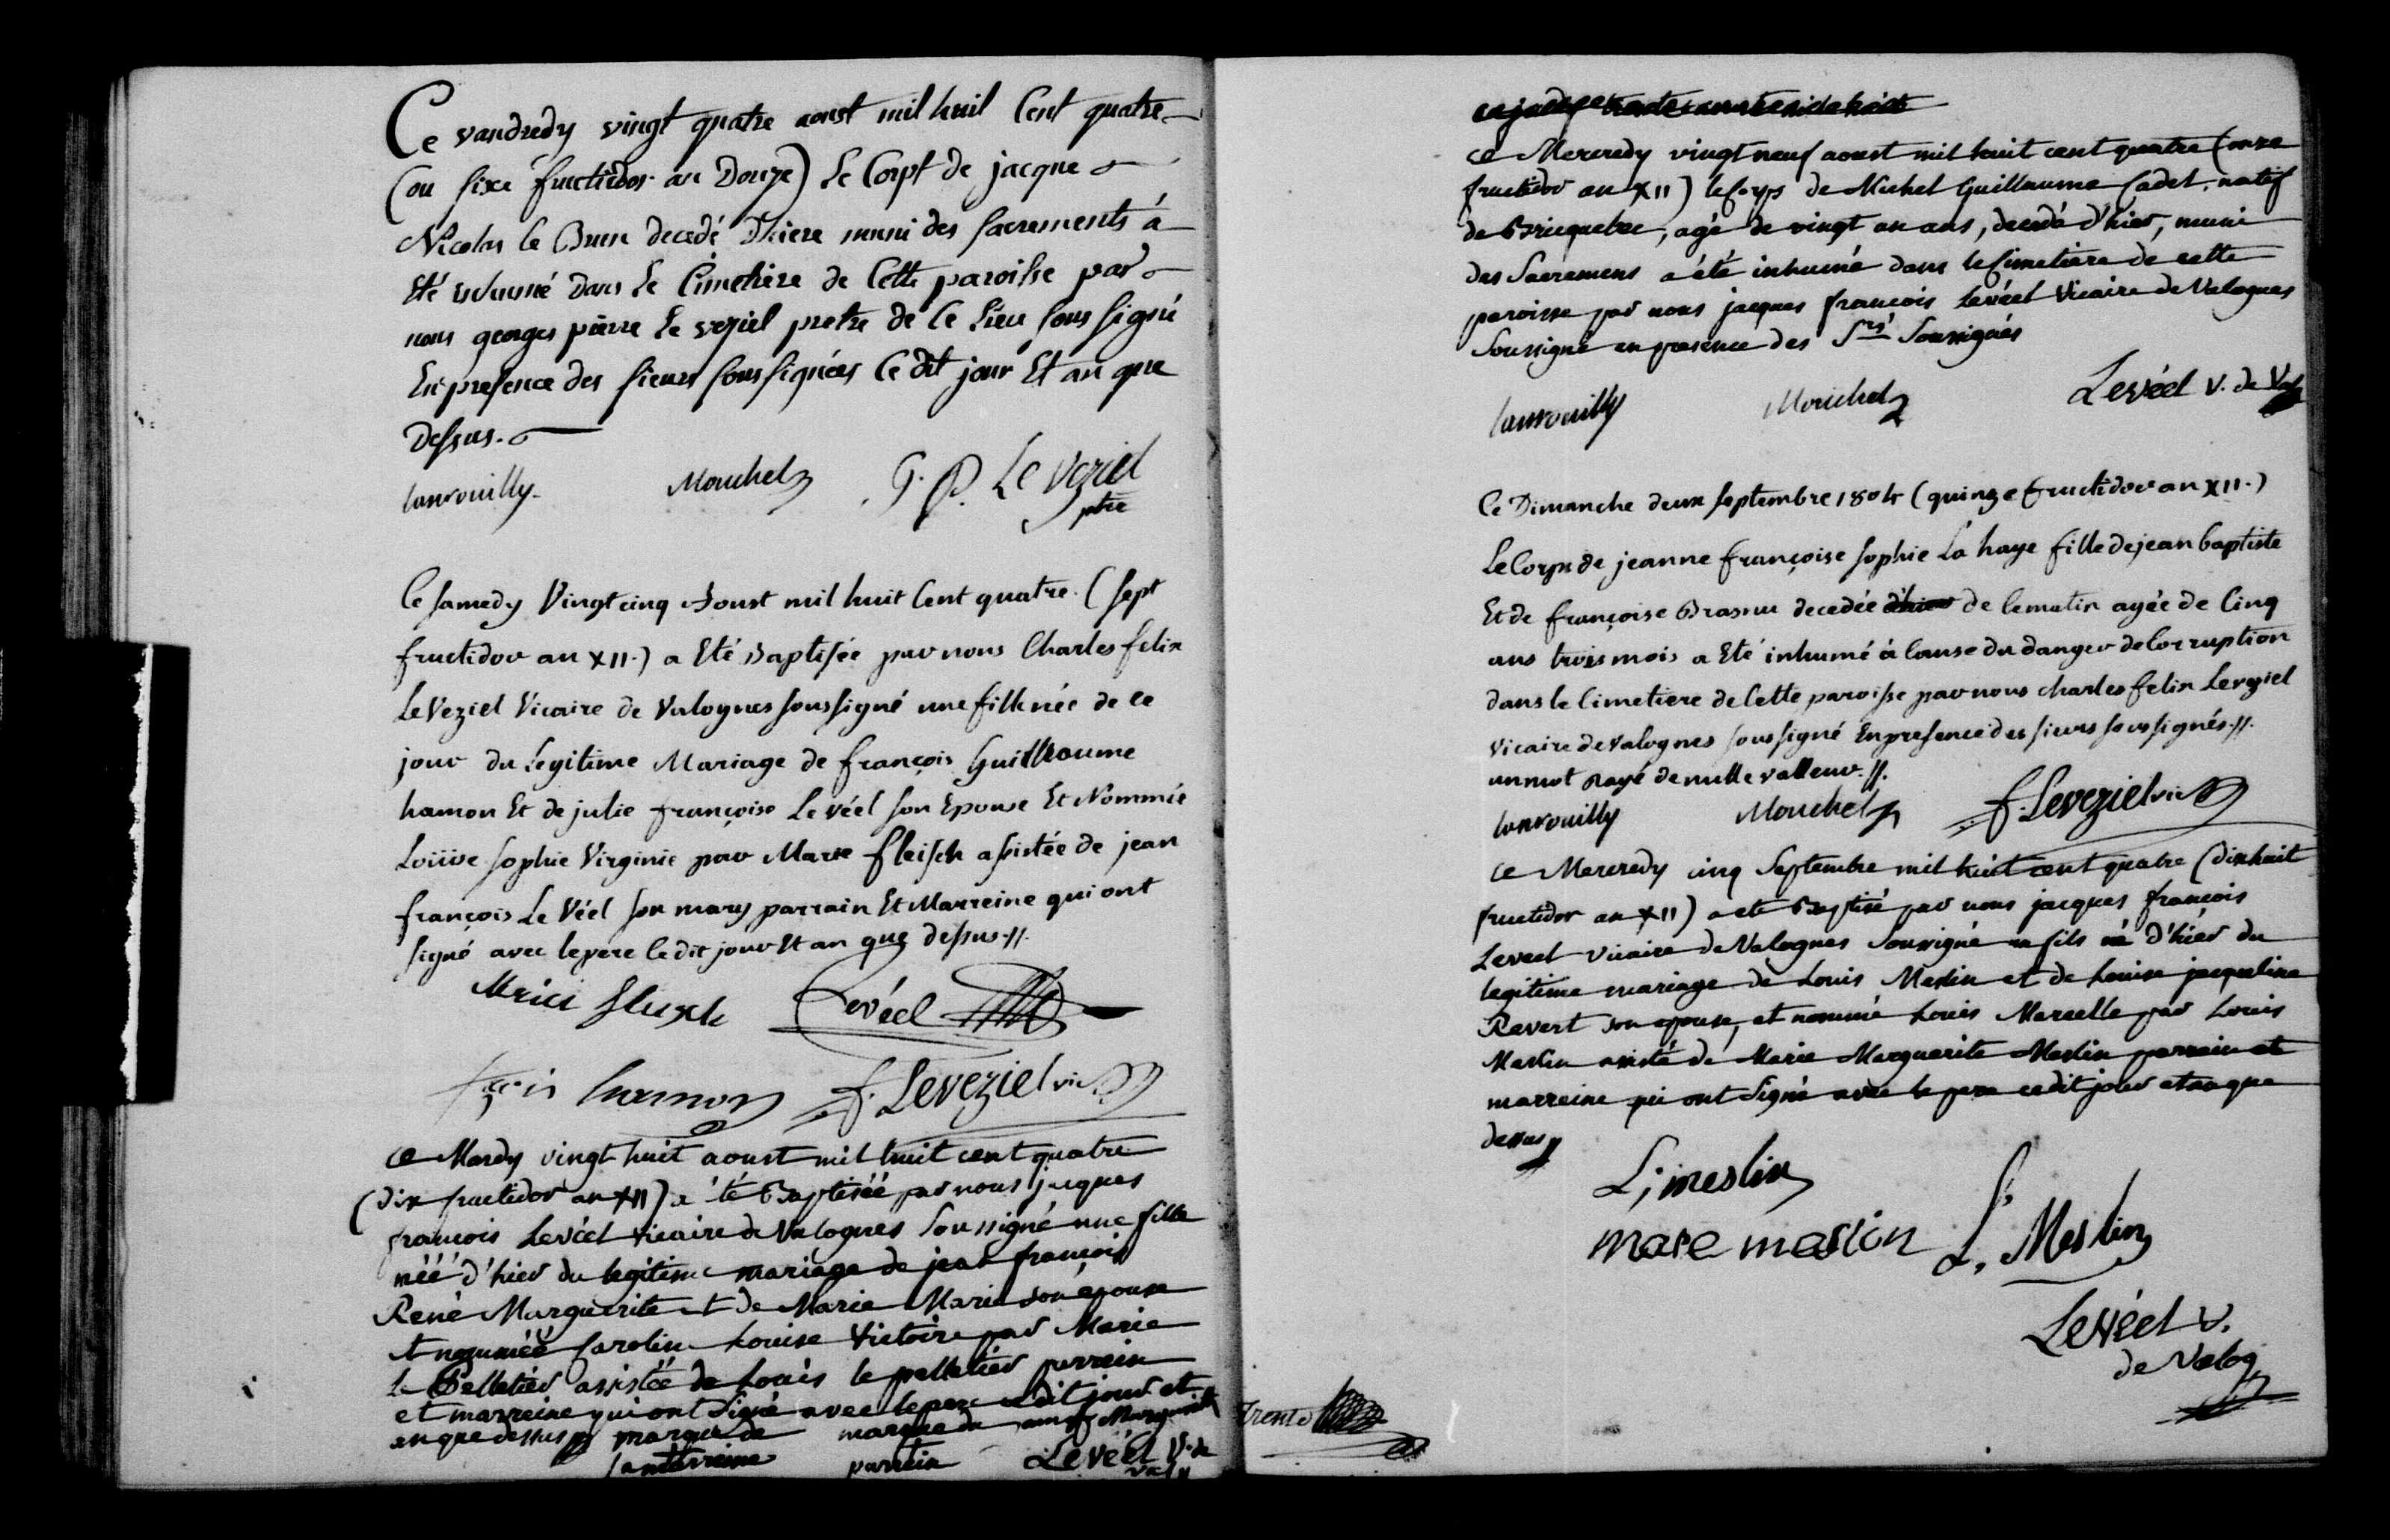 Ce vandredy vingt quatre aoust mil huil Cent quatre
(ou sixe fructidor an Douze) Le Corpt de jacque
Nicolas le Brun decedé Dhiere muni des sacrements à
Eté inhumé dans Le Cimetière de Cette paroisse par
nous georges pierre Le veziel pretre de Ce Lieu sous signé
En presence des sieurs sous signées Ce dit jour Et an que
Dessus.
Lanrouilly
Mouchel
G. P. Le Veziel
ptre
Ce samedy Vingt cinq Aoust mil huit Cent quatre. (sept
fructidor an XII.) a Eté Baptisée par nous Charles felix
LeVeziel Vicaire de Valognes soussigné une fille née de ce
jour du Legitime Mariage de françois Guilleaume
hamon Et de julie françoise Le véel son Epouse Et Nommée
Loüise sophie Virginie par Marie fleisch assistée de jean
françois Le Véel son mary parrain Et Marreine qui ont
signé avec le pere le dit jour Et an que dessus.//.
Levéel
hamon
f. LeVeziel vic
ce Mardy vingt huit aoust mil huit cent quatre
(dix fructidor an XII) a été Baptiséé par nous jacques
françois Levéel vicaire de Valognes Soussigné une fille
néé d'hier du legitime mariage de jean françois
René Marguerite et de Marie Marie son épouse
et nomméé Caroline Louise Victoire par Marie
le Pelletier assistéé de Louis le pelletier parrein
et marreine qui ont Signé avec le pere cedit jour et
an que dessus // marque de marque du Marguerite
la marreine parrein Levéel V. de
Val //
ce Mercredy vingt neuf aoust mil huit cent quatre (onze
fructidor an XII) le Corps de Michel Guillaume Cadet, natif
de Bricquebec, agé de vingt un ans, decedé d'hier, muni
des Sacremens a été inhumé dans le Cimetiere de cette
paroisse par nous jacques françois Levéel Vicaire de Valognes
Soussigné en presence des Srs. Soussignés
Lanrouilly
Mouchel
Levéel V. de Val
Ce Dimanche deux septembre 1804 (quinze fructidor an XII.)
Le Corps de jeanne françoise sophie La haye fille de jean baptiste
Et de françoise Brasnu decedée d'hier de ce matin agée de Cinq
ans trois mois a Eté inhumé à Cause du danger de Corruption
dans le Cimetiere de Cette paroisse par nous charles felix Leveziel
Vicaire de Valognes soussigné En presence des sieurs soussignés.//.
un mot rayé de nulle valleur.//.
Lanrouilly
Mouchel
f. Leveziel vic
ce Mercredy cinq Septembre mil huit cent quatre (dix huit
fructidor an XII) a été Baptisé par nous jacques françois
Leveel vicaire de Valognes Soussigné un fils né d'hier du
legitime mariage de Louis Meslin et de Louise jacqueline
Revert son epouse, et nommé Louis Marcelle par Louis
Meslin assisté de Marie Marguerite Meslin parrein et
marreine qui ont Signé avec le pere cedit jour et an que
dessus //
L; meslin
mare meslion
L. Meslin
Levéel V.
de Valog
Trente